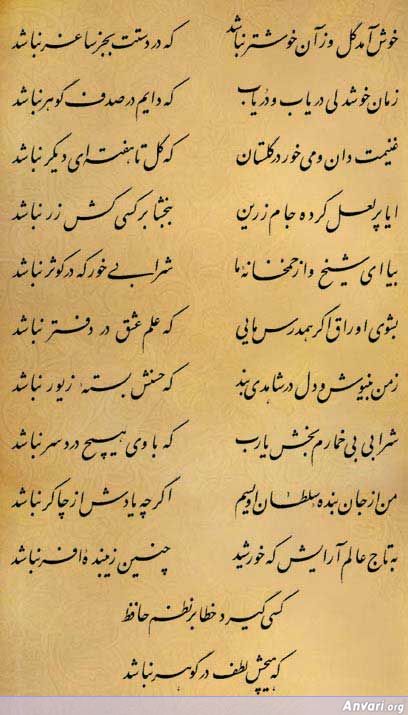 خوش آمد گل وزآن خوشتر نباشد که در دستت بجز ساغر نباشد
زمان خوشدلی دریاب و دُر یاب که دایم در صدف گوهر نباشد
غنیمت دان و می خور در گلستان که گل تا هفته ای دیگر نباشد
ایا پرلعل کرده جام زرین ببخشا بر کسی کش زر نباشد
بیا ای شیخ و از خمخانهٔ ما شرابی خور که در کوثر نباشد
بشوی اوراق اگر همدرس مایی که علم عشق در دفتر نباشد
ز من بنیوش و دل در شاهدی بند که حسنش بستهٔ زیور نباشد
شرابی بی خمارم بخش یارب که با وی هیچ درد سر نباشد
من از جان بندهٔ سلطان اویسم اگرچه یادش از چاکر نباشد
به تاج عالم آرایش که خورشید چنین زیبندهٔ افسر نباشد
کسی گیرد خطا بر نظم حافظ
که هیچش لطف در گوهر نباشد
Anvari.org